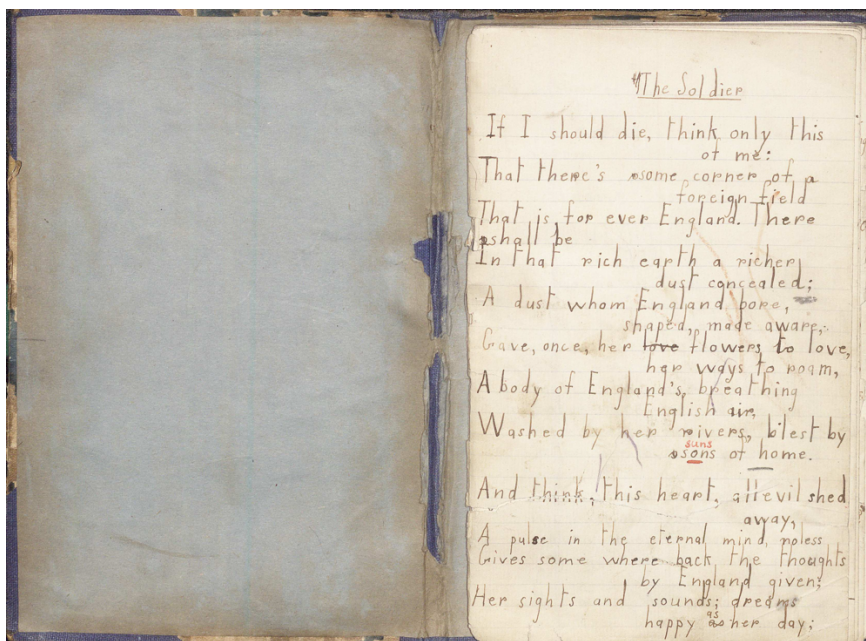 "The Soldier
If I should die, think only this
of me:
That there's some corner of a
foreign field
That is for ever England. There
shall be
In that rich earth a richer
dust concealed;
A dust whom England bore,
shaped, made aware,
Gave, once, her love flowers to love,
her ways to roam,
A body of England's, breathing
English air,
Washed by her rivers, blest by
suns
sons of home.
And think, this heart, all evil shed
away,
A pulse in the eternal mind, no less
Gives some where back the thoughts
by England given;
Her sights and sounds; dreams
happy as her day;